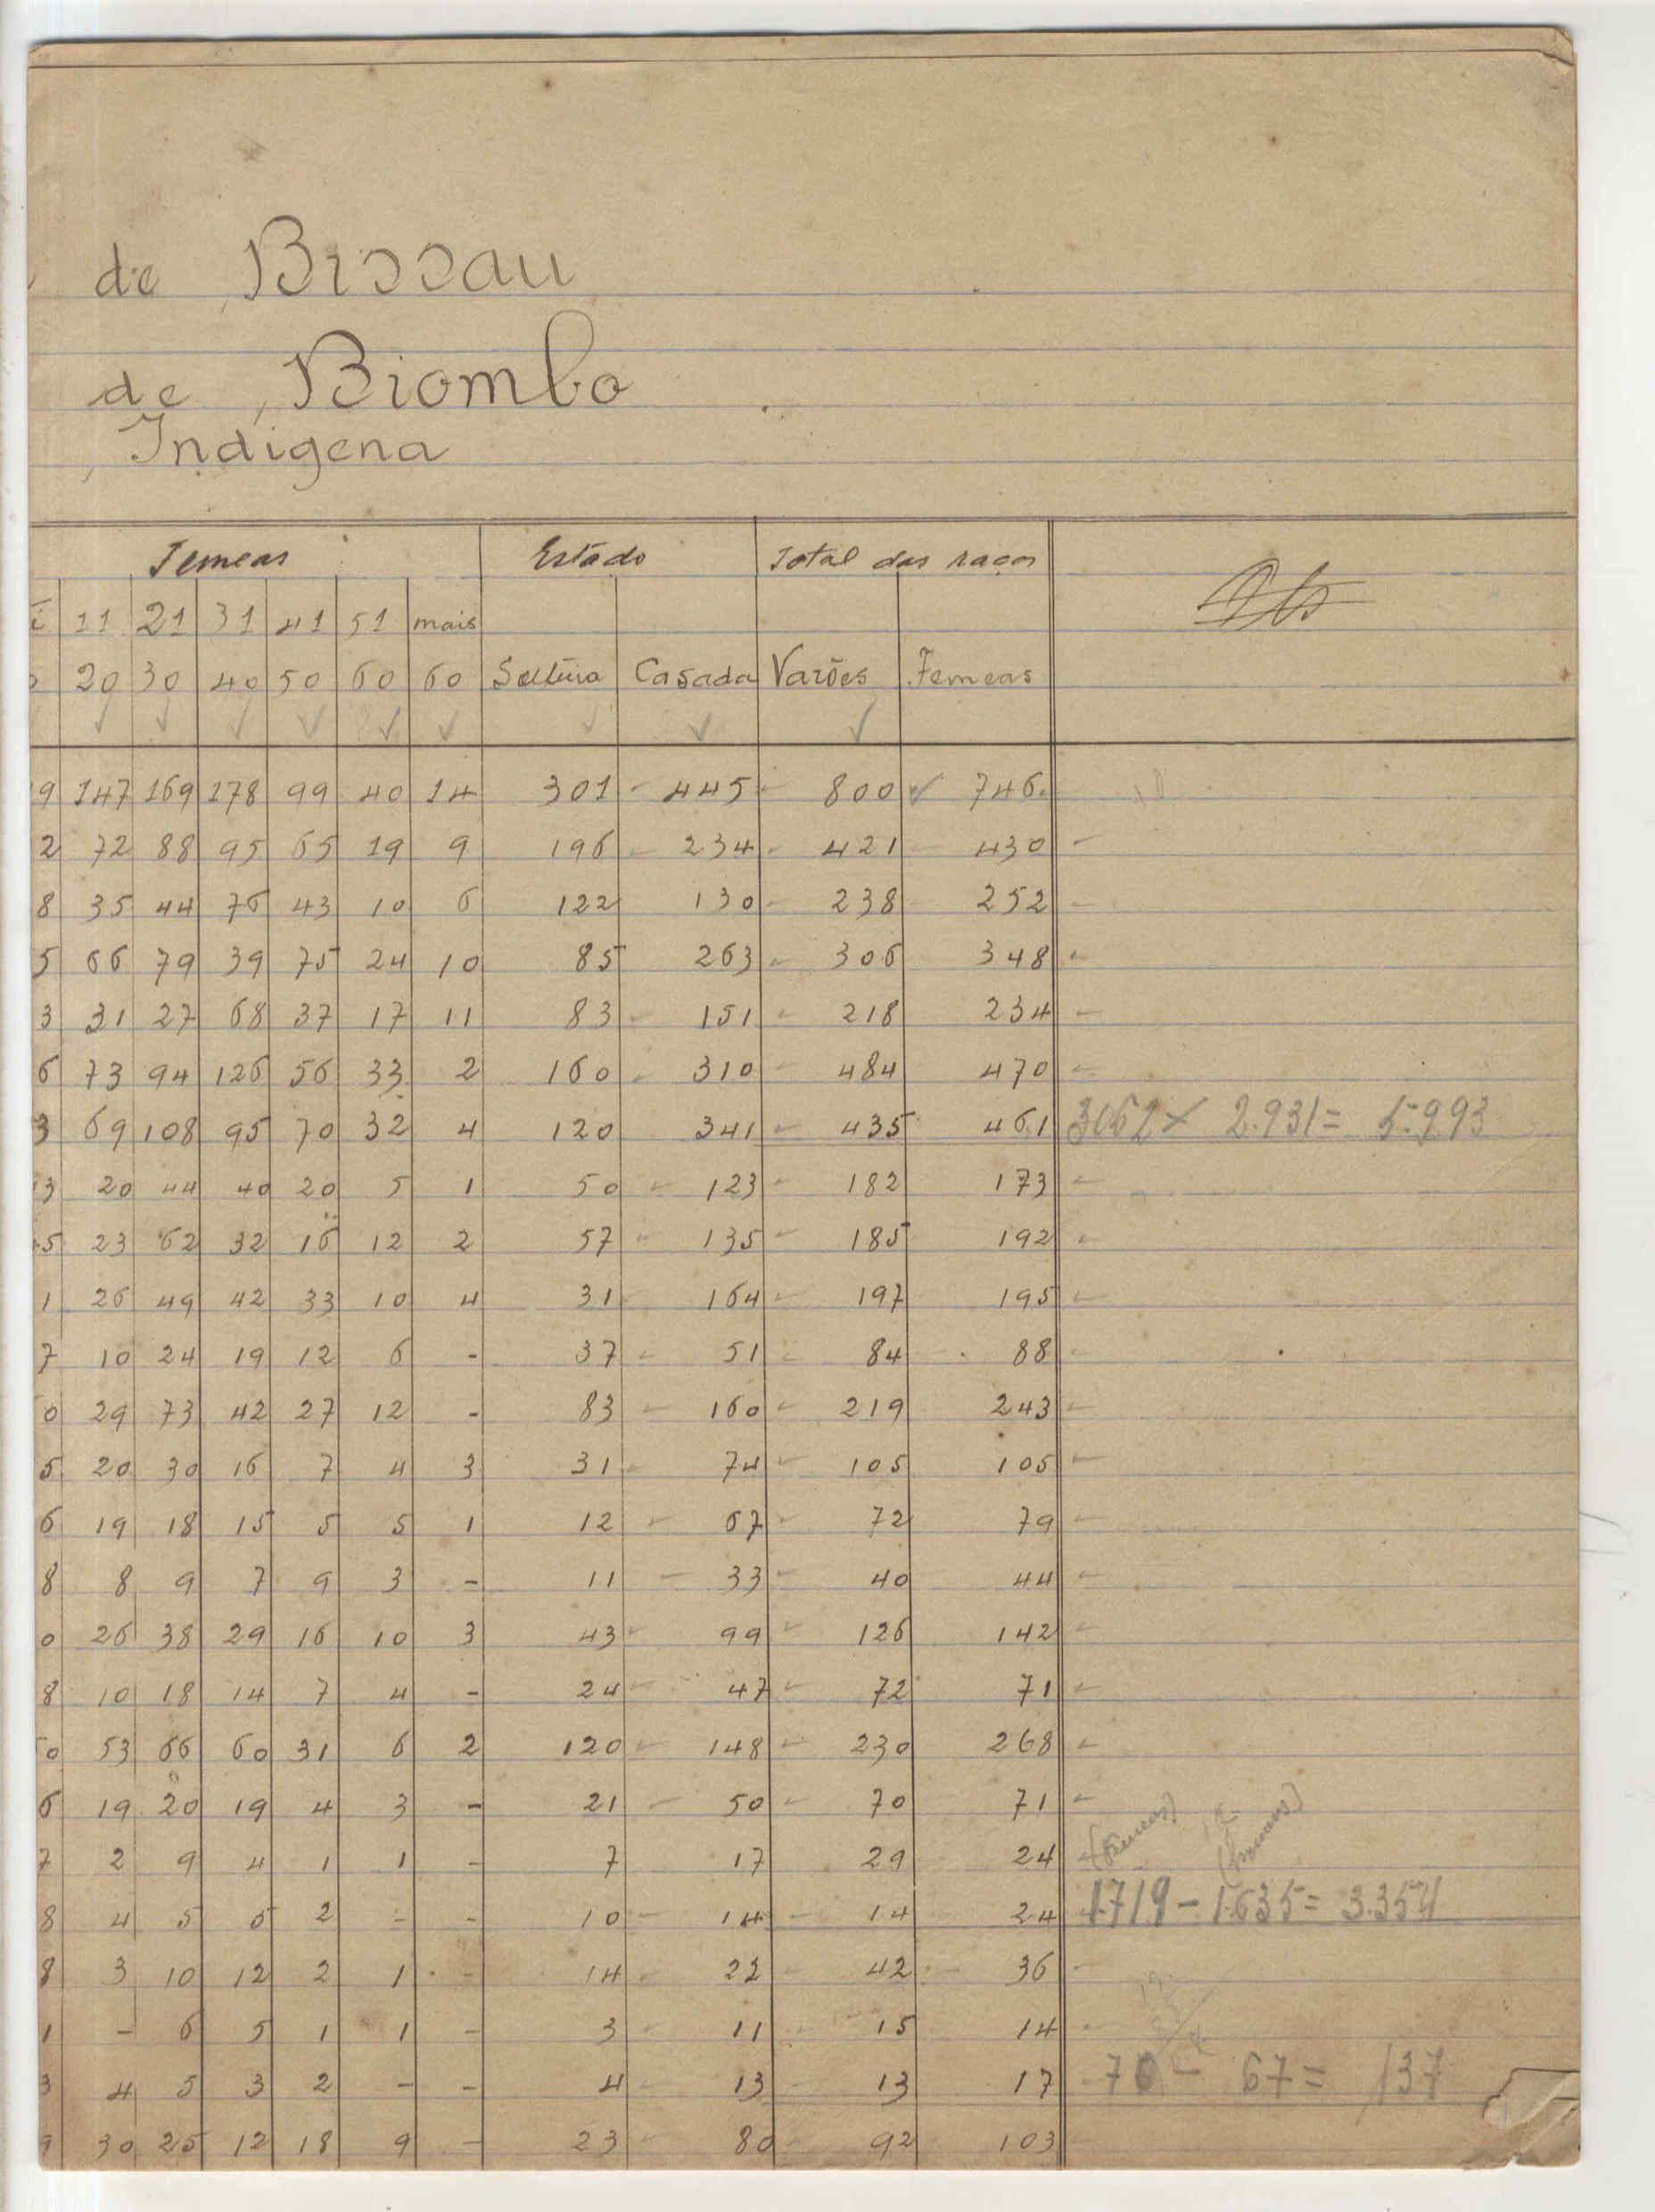 de Bissau
de Biombo
Indigena
Femeas Estado Total das raças
11 21 31 41 51 mais
20 30 40 50 60 60 Solteira Casada Varões Femeas
9 147 169 178 99 40 14 301 445 800 746
2 72 88 95 65 19 9 196 234 421 430
8 35 44 76 43 10 6 122 130 238 252
5 66 79 39 75 24 10 85 263 306 348
3 31 27 68 37 17 11 83 151 218 234
6 73 94 126 56 33 2 160 310 484 470
3 69 108 95 70 32 4 120 341 435 461 3062 × 2.931 = 5.993
3 20 44 40 20 5 1 50 123 182 173
5 23 62 32 16 12 2 57 135 185 192
1 26 49 42 33 10 4 31 164 197 195
7 10 24 19 12 6 - 37 51 84 88
0 29 73 42 27 12 - 83 160 219 243
5 20 30 16 7 4 3 31 74 105 105
6 19 18 15 5 5 1 12 67 72 79
8 8 9 7 9 3 - 11 33 40 44
0 26 38 29 16 10 3 43 99 126 142
8 10 18 14 7 4 - 24 47 72 71
0 53 66 60 31 6 2 120 148 230 268
6 19 20 19 4 3 - 21 50 70 71
7 2 9 4 1 1 - 7 17 29 24 (femeas)
8 4 5 5 2 - - 10 14 14 24 1.719 - 1.635 = 3.354
8 3 10 12 2 1 - 14 22 42 36
1 - 6 5 1 1 - 3 11 15 14
3 4 5 3 2 - - 4 13 13 17 70 - 67 = 137
9 30 25 12 18 9 - 23 80 92 103